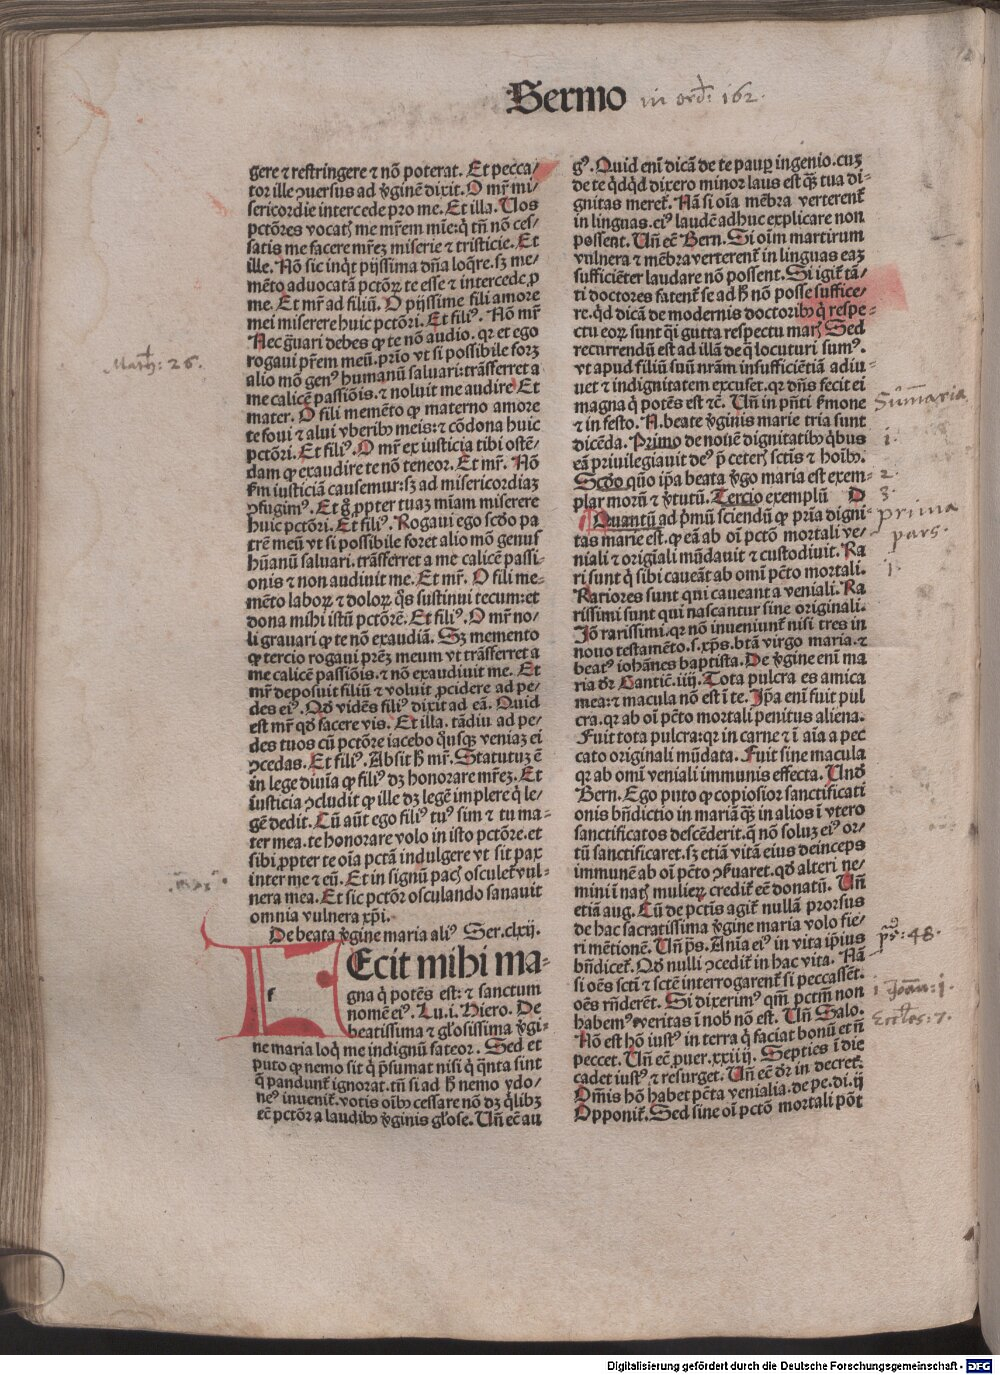 Sermo in ord: 162.
gere ⁊ restringere ⁊ nõ poterat. Et pecca/
tor ille ꝯuersus ad ꝟginẽ dixit. O mr̃ mi/
sericordie intercede pro me. Et illa. Uos
pctõres vocatꝭ me mr̃em mĩe: q̇ tñ nõ ces/
satis me facere mr̃eꝫ miserie ⁊ tristicie. Et
ille. Nõ sic inq̇t pijssima dña loq̃re. sꝫ me/
mẽto aduocatã pctõꝝ te esse ⁊ intercede ꝓ
me. Et mr̃ ad filiũ. O pijssime fili amore
mei miserere huic pctõri. Et filiꝰ. Nõ mr̃
Nec g̃uari debes ꝙ te nõ audio. qr̃ et ego
rogaui pr̃em meũ. prĩo vt si possibile forꝫ
alio mõ genꝰ humanũ saluari: trãsferret a
me calicẽ passiõis. ⁊ noluit me audire Et
mater. O fili memẽto ꝙ materno amore
te foui ⁊ alui vberibꝰ meis: ⁊ cõdona huic
pctõri. Et filiꝰ. O mr̃ ex iusticia tibi ostẽ/
dam ꝙ exaudire te nõ teneor. Et mr̃. Nõ
ẜm iusticiã causemur: sꝫ ad misericordiaꝫ
ꝯfugimꝰ. Et g̊ ꝓpter tuaꝫ miam miserere
huic pctõri. Et filiꝰ. Rogaui ego scḋo pa
trẽ meũ vt si possibile foret alio mõ genus
hũanũ saluari. trãsferret a me calicẽ passi
onis ⁊ non audiuit me. Et mr̃. O fili me⸗
mẽto laboꝝ ⁊ doloꝝ q̃s sustinui tecum: et
dona mihi istũ pctõrẽ. Et filiꝰ. O mr̃ no/
li grauari ꝙ te nõ exaudiã. Sꝫ memento
ꝙ tercio rogaui prẽꝫ meum vt trãsferret a
me calicẽ passiõis. ⁊ nõ exaudiuit me. Et
mr̃ deposuit filiũ ⁊ voluit ꝓcidere ad pe/
des eiꝰ. Qḋ vidẽs filiꝰ dixit ad eã. Quid
est mr̃ qḋ facere vis. Et illa. tãdiu ad pe/
des tuos cũ pctõre iacebo q̇usqꝫ veniaꝫ ei
ꝯcedas. Et filiꝰ. Absit h̃ mr̃. Statutuꝫ ẽ
in lege diuĩa ꝙ filiꝰ dꝫ honorare mr̃eꝫ. Et
iusticia ꝯcludit ꝙ ille dꝫ legẽ implere q̇ le/
gẽ dedit. Cũ aũt ego filiꝰ tuꝰ sim ⁊ tu ma/
ter mea. te honorare volo in isto pctõre. et
sibi ꝓpter te oĩa pctã indulgere vt sit pax
inter me ⁊ eũ. Et in signũ pacꝭ osculet̃ vul⸗
nera mea. Et sic pctõr osculando sanauit
omnia vulnera xp̃i.
De beata ꝟgine maria aliꝰ Ser. clxij.
f
Ecit mihi ma⸗
gna q̇ potẽs est: ⁊ sanctum
nomẽ eiꝰ. Lu. i. Hiero. De
beatissima ⁊ gl̃osissima ꝟgi⸗
ne maria loq̇ me indignũ fateor. Sed et
puto ꝙ nemo sit q̇ p̃sumat nisi q̇ q̃nta sint
q̃ pandunt̃ ignorat. tñ si ad h̃ nemo ydo/
neꝰ inuenit̃. votis oĩbꝰ cessare nõ dꝫ q̇libꝫ
eẽ pctõr a laudibꝰ ꝟginis gl̃ose. Uñ eẽ au
gꝰ. Quid enĩ dicã de te pauꝑ ingenio. cuꝫ
de te q̇dq̇d dixero minor laus est q̃ꝫ tua di⸗
gnitas meret̃. Nã si oĩa mẽbra verterent̃
in linguas. eiꝰ laudẽ adhuc explicare non
possent. Uñ eẽ Bern. Si oĩm martirum
vulnera ⁊ mẽbra verterent̃ in linguas eaꝫ
sufficiẽter laudare nõ possent. Si igit̃ tã/
ti doctores fatent̃ se ad h̃ nõ posse suffice/
re. qḋ dicã de modernis doctoribꝰ q̇ respe⸗
ctu eoꝝ sunt q̃i gutta respectu marꝭ Sed
recurrendũ est ad illã de q̃ locuturi sumꝰ.
vt apud filiũ suũ nr̃am insufficiẽtiã adiu⸗
uet ⁊ indignitatem excuset. qr̃ dñs fecit ei
magna q̇ potẽs est ⁊c̃. Uñ in pñti ẜmone
⁊ in festo. N. beate ꝟginis marie tria sunt
dicẽda. Primo de nouẽ dignitatibꝰ q̇bus
eã priuilegiauit deꝰ p̃ ceterꝭ sctĩs ⁊ hoĩbꝰ.
Scḋo quõ ip̃a beata ꝟgo maria est exem⸗
plar morũ ⁊ ꝟtutũ. Tercio exemplũ D
Quantũ ad p̃mũ sciendũ ꝙ prĩa digni⸗
tas marie est. ꝙ eã ab oĩ pctõ mortali ve⸗
niali ⁊ origĩali mũdauit ⁊ custodiuit. Ra
ri sunt q̇ sibi caueãt ab omĩ pctõ mortali.
Rariores sunt qui caueant a veniali. Ra
rissimi sunt qui nascantur sine originali.
Jõ rarissimi. qr̃ nõ inueniunt̃ nisi tres in
nouo testamẽto. s. xp̃s. btã virgo maria. ⁊
beatꝰ iohãnes baptista. De ꝟgine enĩ ma
ria dr̃ Canticꝭ. iiij. Tota pulcra es amica
mea: ⁊ macula nõ est ĩ te. Jp̃a enĩ fuit pul
cra. qr̃ ab oĩ pctõ mortali penitus aliena.
Fuit tota pulcra: qr̃ in carne ⁊ ĩ aĩa a pec
cato originali mũdata. Fuit sine macula
qr̃ ab omĩ veniali immunis effecta. Unḋ
Bern. Ego puto ꝙ copiosior sanctificati
onis bñdictio in mariã q̃ꝫ in alios ĩ vtero
sanctificatos descẽderit. q̃ nõ soluꝫ eiꝰ or/
tũ sanctificaret. sꝫ etiã vitã eius deinceps
immunẽ ab oĩ pctõ ꝯẜuaret. qḋ alteri ne/
mini ĩ natꝭ mulieꝝ credit̃ eẽ donatũ. Uñ
etiã aug. Cũ de pctĩs agit̃ nullã prorsus
de hac sacratissima ꝟgine maria volo fie/
ri mẽtionẽ. Uñ p̃s. Anĩa eiꝰ in vita ip̃ius
bñdicet̃. Qḋ nulli ꝯcedit̃ in hac vita. Nã
si oẽs scti ⁊ sctẽ interrogarent̃ si peccassẽt.
oẽs rñderẽt. Si dixerimꝰ qm̃ pctm̃ non
habemꝰ ⁊ veritas ĩ nob̃ nõ est. Uñ Salo.
Nõ est hõ iustꝰ in terra q̇ faciat bonũ et ñ
peccet. Uñ eẽ ꝓuer. xxiiij. Septies ĩ die
cadet iustꝰ ⁊ resurget. Uñ eẽ dr̃ in decret̃.
Om̃is hõ habet pctã venialia. de pe. di. ij
Opponit̃. Sed sine oĩ pctõ mortali põt
Math: 26.
Sum̃aria
1.
2.
3.
prima
pars.
1.
ps: 48.
1 Joan: 1.
Eccles: 7.
Digitalisierung gefördert durch die Deutsche Forschungsgemeinschaft - DFG